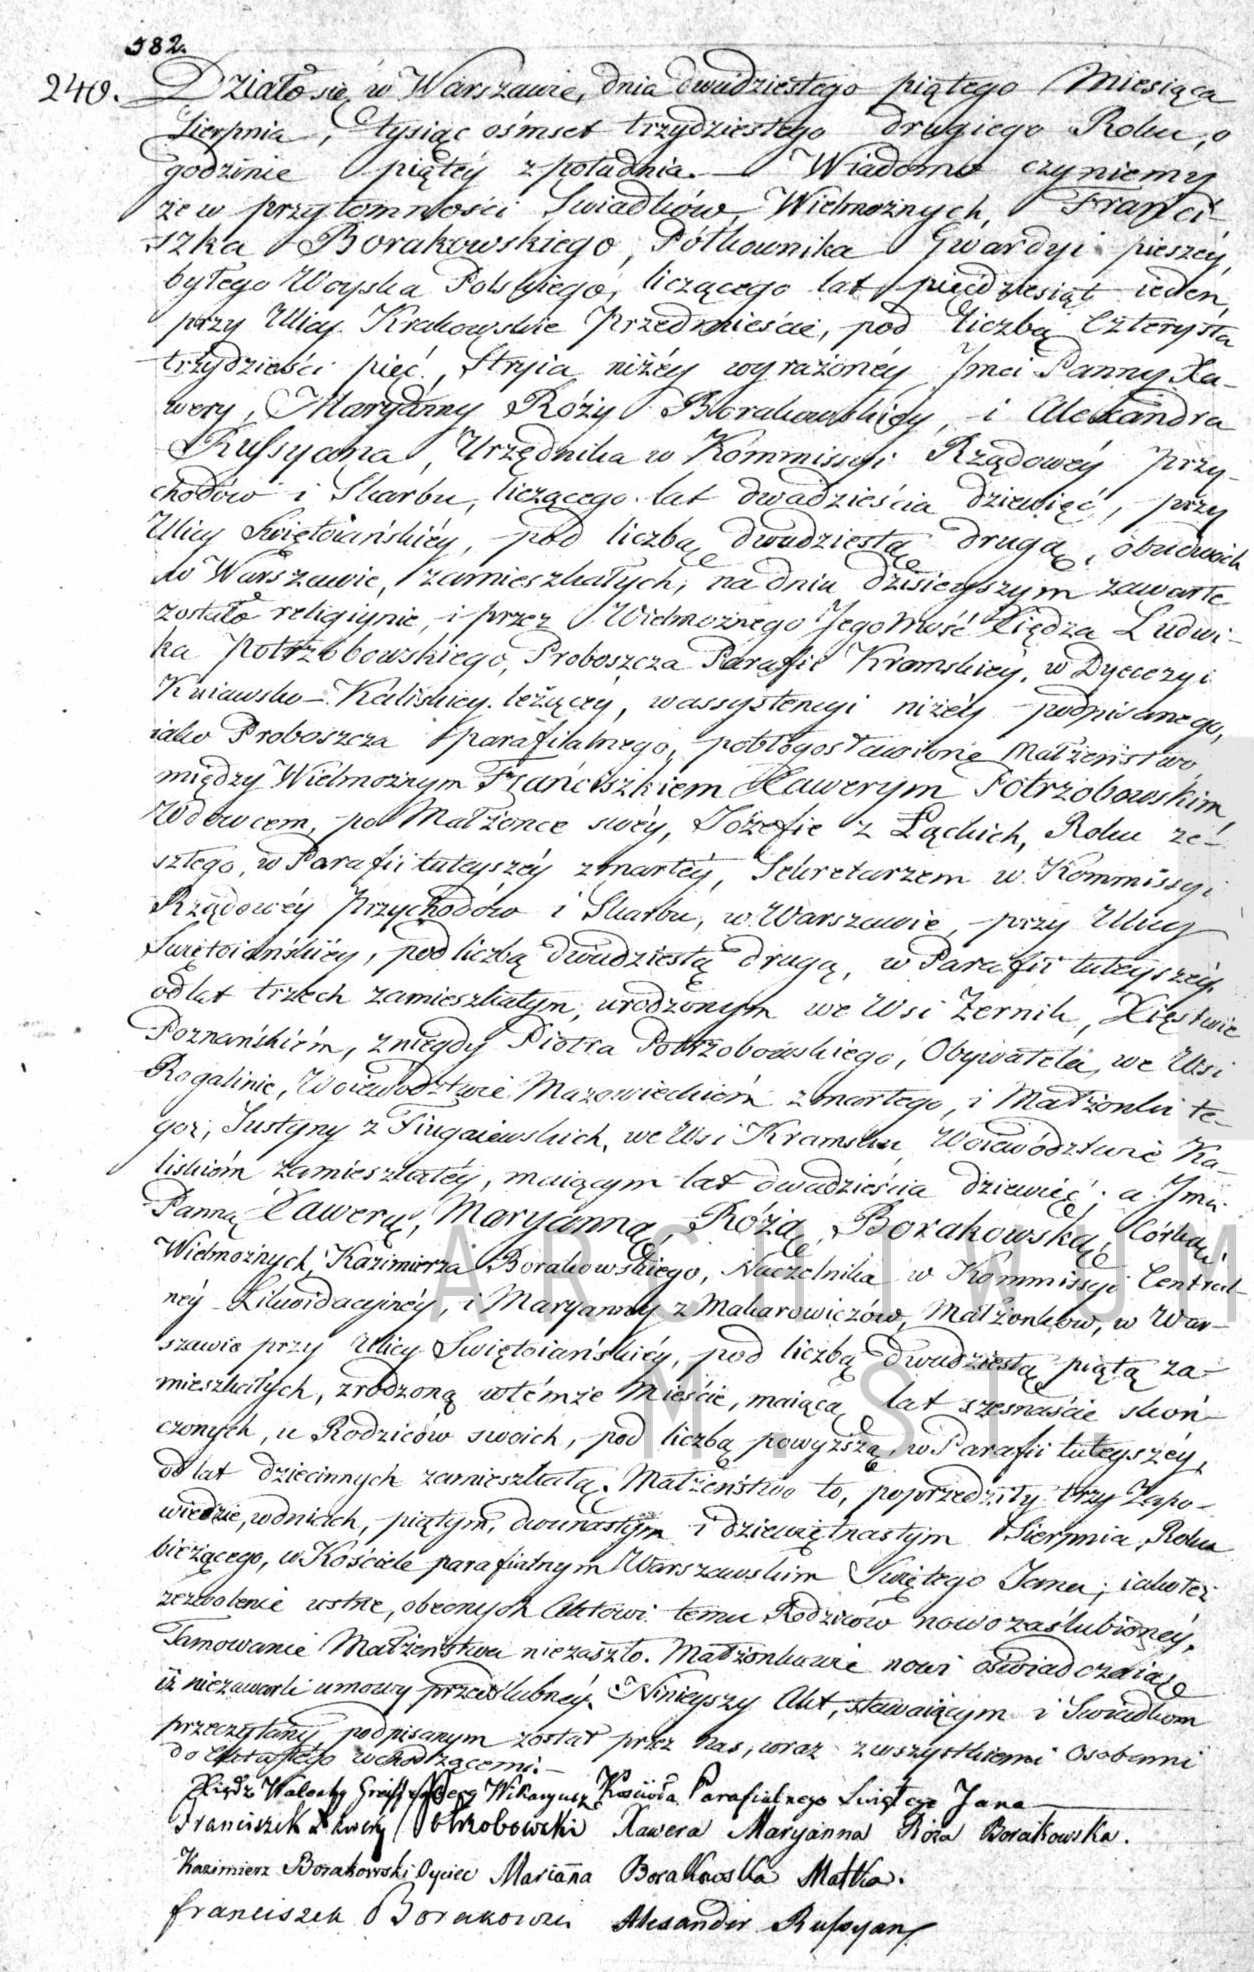 382.
240. Działo się w Warszawie, dnia dwudziestego piątego Miesiąca
Sierpnia, tysiąc ośmset trzydziestego drugiego Roku, o
godzinie piątéy z południa. — Wiadomo czyniemy
że w przytomności Swiadków, Wielmożnych, Franci-
szka Borakowskiego, Półkownika Gwardyi pieszéy,
byłego Woyska Polskiego, liczącego lat pięćdziesiąt ieden,
przy Ulicy Krakowskie Przedmieście, pod liczbą Czterysta
trzydzieści pięć, Stryia niżéy wyrażonéy Jmci Panny Xa-
wery, Maryanny Róży Borakowskiéy, i Alexandra
Russyana, Urzędnika w Kommissyi Rządowéy Przy-
chodów i Skarbu, liczącego lat dwadzieścia dziewięć, przy
Ulicy Swiętoiańskiéy, pod liczbą dwudziestą drugą, obudwóch
w Warszawie, zamieszkałych; na dniu dzisieyszym zawarte
zostało religiynie, i przez Wielmożnego Jegomość Xiędza Ludwi-
ka Potrzobowskiego, Proboszcza Parafii Kramskiey, w Dyecezyi
Kuiawsko-Kaliskiey leżącey, w assystencyi niżéy podpisanego,
iako Proboszcza parafialnego, pobłogosławione Małżeństwo
między Wielmożnym Franciszkiem Xawerym Potrzobowskim,
Wdowcem, po Małżonce swéy, Józefie z Łąckich, Roku ze-
szłego, w Parafii tuteyszéy zmarłéy, Sekretarzem w Kommissyi
Rządowéy Przychodów i Skarbu, w Warszawie, przy Ulicy
Swiętoiańskiéy, pod liczbą dwudziestą drugą, w Parafii tuteyszéy,
od lat trzech zamieszkałym, urodzonym we Wsi Zernik, Xięstwie
Poznańskiém, z niegdy Piotra Potrzobowskiego, Obywatela, we Wsi
Rogalinie, Woiewodztwie Mazowieckiém zmarłego, i Małżonki te-
goż, Justyny z Fiugaiewskich, we Wsi Kramsku Woiewództwie Ka-
liskiém zamieszkałéy, maiącym lat dwadzieścia dziewięć; a Jmci
Panną Xawerą, Maryanną, Różą Borakowską, Córką
Wielmożnych Kazimierza Borakowskiego, Naczelnika w Kommissyi Central-
néy Likwidacyjnéy, i Maryanny z Makarowiczów, Małżonków, w War-
szawie przy Ulicy Swiętoiańskiéy, pod liczbą dwudziestą piątą za-
mieszkałych, zrodzoną w témże Mieście, maiącą lat szesnaście skoń-
czonych, u Rodziców swoich, pod liczbą powyższą, w Parafii tuteyszéy,
od lat dziecinnych zamieszkałą. Małżeństwo to, poprzedziły trzy Zapo-
wiedzie, w dniach, piątym, dwunastym i dziewiętnastym Sierpnia, Roku
bieżącego, w Kościele parafialnym Warszawskim Swiętego Jana; iakoteż
zezwolenie ustne, obecnych Aktowi temu Rodziców nowozaślubionéy.
Tamowanie Małżeństwa niezaszło. Małżonkowie nowi oświadczaią
iż niezawarli umowy przedślubnéy. Ninieyszy Akt, stawaiącym i Swiadkom
przeczytany podpisanym został przez nas, wraz z wszystkiemi Osobami
do Aktu tego wchodzącemi. —
Xiądz Walenty Wikaryusz Kościoła Parafialnego Świętego Jana
Franciszek Xawery Potrzobowski Xawera Maryanna Róża Borakowska.
Kazimierz Borakowski Oyciec Marianna Borakowska Matka.
Franciszek Borakowski Alexander Russyan
ARCHIWUM
M. ST.